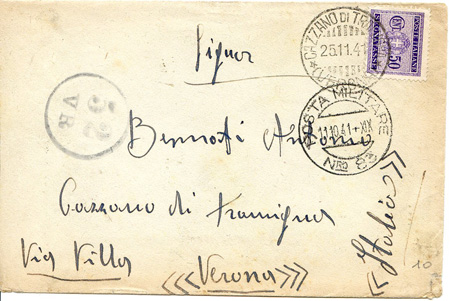 Signor
CAZZANO DI TRA
25.11.41
POSTE ITALIANE
SEGNATASSE
50
POSTA MILITARE
11.10.41 XIX
NRO 83
VR
Bennati Antonio
Cazzano di Tramigna
Via Villa
«Verona»
«Italia»
10